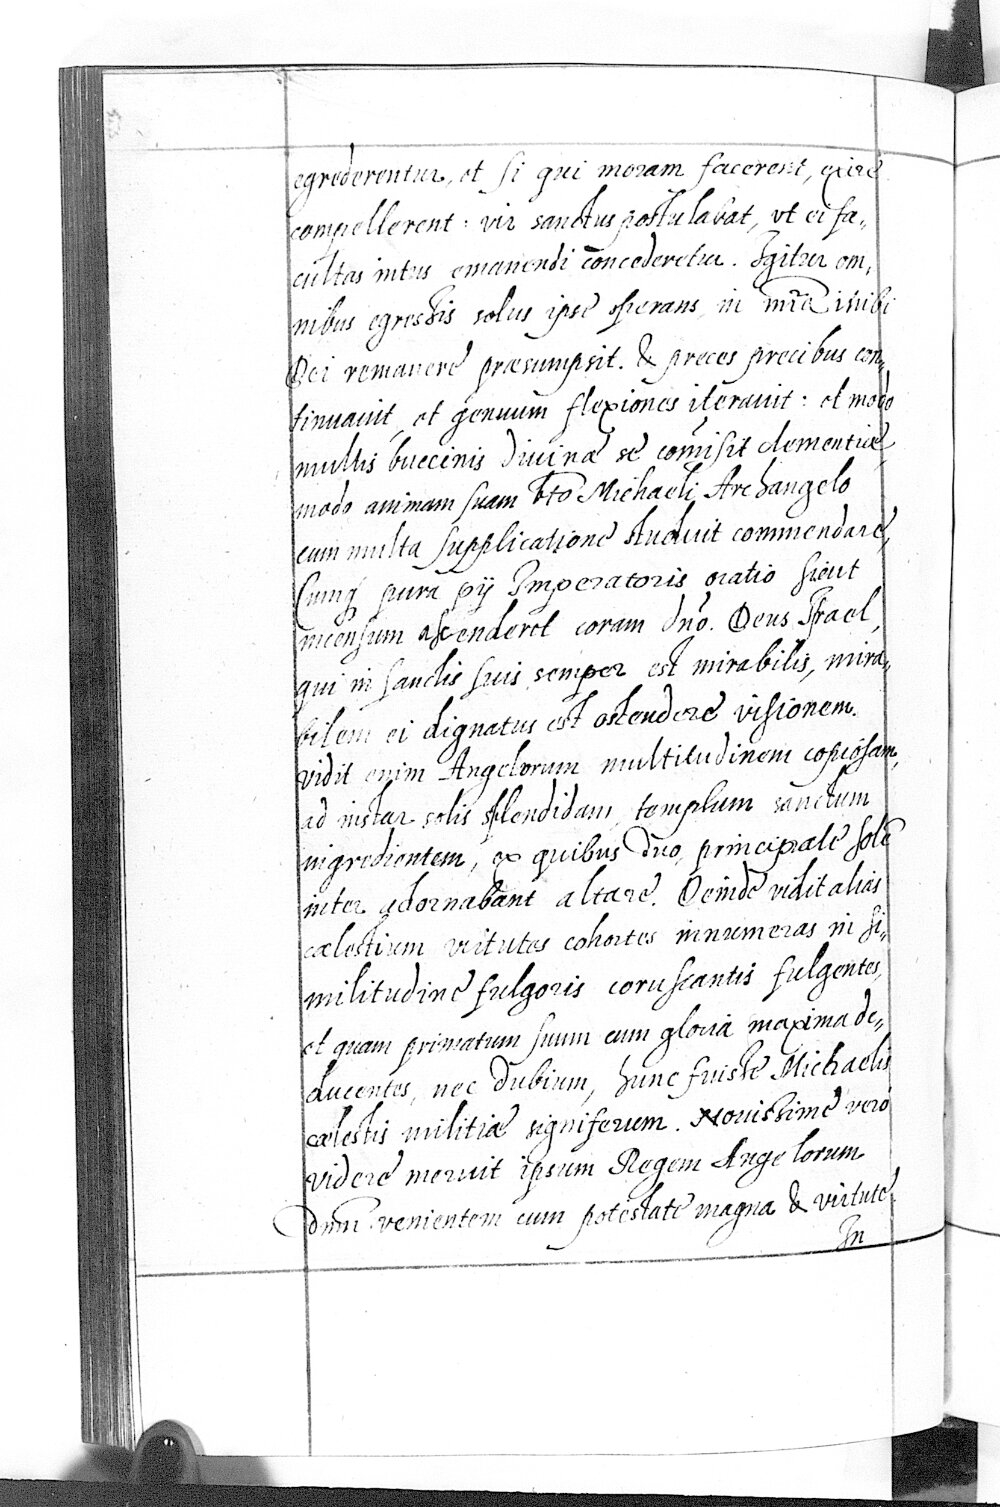 egrederentur, et si qui moram facerent, exire
compellerent: vir sanctus postulabat, vt ei fa„
cultas intus emanendi concederetur. Igitur om„
nibus egressis solus ipse sperans in mīa inibi
Dei remanere præsumpsit. & preces precibus con„
tinuauit, et genuum flexiones iterauit: et modo
multis buccinis Diuinæ se com̄isit clementiæ,
modo animam suam bto Michaeli Archangelo
cum multa supplicatione studuit commendare,
Cumq́ pura pij Imperatoris oratio sicut
incensum ascenderet coram dn̄o. Deus Israel,
qui in sanctis suis semper est mirabilis, mira„
bilem ei dignatus est ostendere visionem.
vidit enim Angelorum multitudinem copiosam,
ad instar solis splendidam, templum sanctum
ingredientem, ex quibus duo, principale sole
inter adornabant altare. Deinde vidit alias
cælestium virtutes cohortes innumeras in si„
militudine fulgoris coruscantis fulgentes,
et quam primatum suum cum gloria maxima de„
ducentes, nec dubium, hunc fuisse Michaelis
cælestis militiæ signiferum. Nouissimè verò
videre meruit ipsum Regem Angelorum
Dnm̄ venientem cum potestate magna & virtute
In